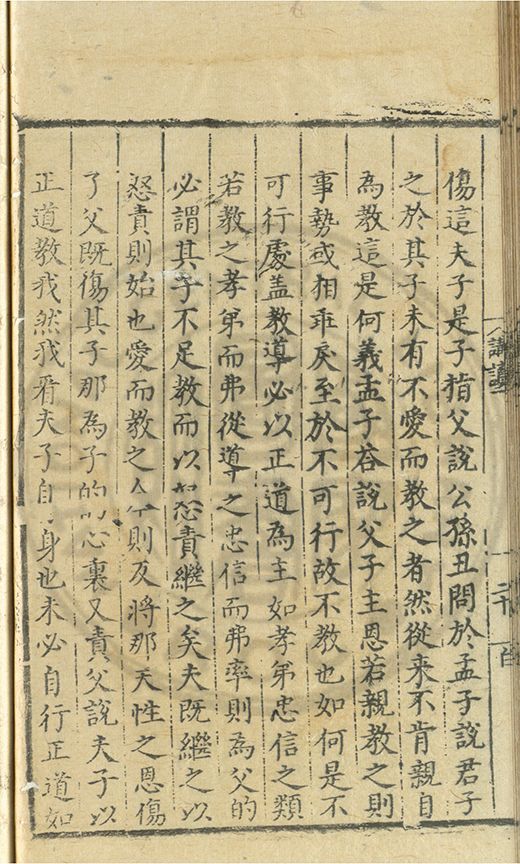 傷這夫子是子指父說公孫丑問於孟子說君子
之於其子未有不愛而教之者然從来不肯親自
為教這是何義孟子荅說父子主恩若親教之則
事勢或相乖戾至於不可行故不教也如何是不
可行處盖教導必以正道為主如孝弟忠信之類
若教之孝弟而弗從導之忠信而弗率則為父的
必謂其子不足教而以怒責繼之矣夫既繼之以
怒責則始也愛而教之今則反將那天性之恩傷
了父既傷其子那為子的心裏又責父說夫子以
正道教我然我看夫子自身也未必自行正道如